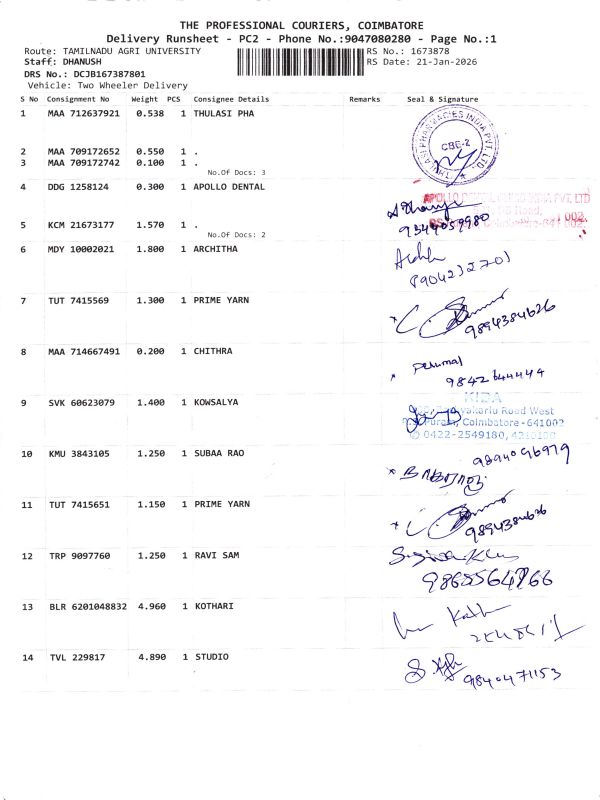 THE PROFESSIONAL COURIERS, COIMBATORE
Delivery Runsheet - PC2 - Phone No.:9047080280 - Page No.:1
Route: TAMILNADU AGRI UNIVERSITY
RS No.: 1673878
Staff: DHANUSH
RS Date: 21-Jan-2026
DRS No.: DCJB167387801
Vehicle: Two Wheeler Delivery
S No Consignment No Weight PCS Consignee Details Remarks Seal & Signature
1 MAA 712637921 0.538 1 THULASI PHA
THULASI PHARMACIES INDIA PVT. LTD.
CBE-2
2 MAA 709172652 0.550 1 .
3 MAA 709172742 0.100 1 .
No.Of Docs: 3
4 DDG 1258124 0.300 1 APOLLO DENTAL
PVT. LTD
Road,
Coimbatore-641 002.
9344059980
5 KCM 21673177 1.570 1 .
No.Of Docs: 2
6 MDY 10002021 1.800 1 ARCHITHA
8904232703
7 TUT 7415569 1.300 1 PRIME YARN
9894384626
8 MAA 714667491 0.200 1 CHITHRA
Perumal
9842644444
9 SVK 60623079 1.400 1 KOWSALYA
Road West
Puram, Coimbatore-641002
0422-2549180,
10 KMU 3843105 1.250 1 SUBAA RAO
9894096979
11 TUT 7415651 1.150 1 PRIME YARN
9894384626
12 TRP 9097760 1.250 1 RAVI SAM
13 BLR 6201048832 4.960 1 KOTHARI
14 TVL 229817 4.890 1 STUDIO
9840471153